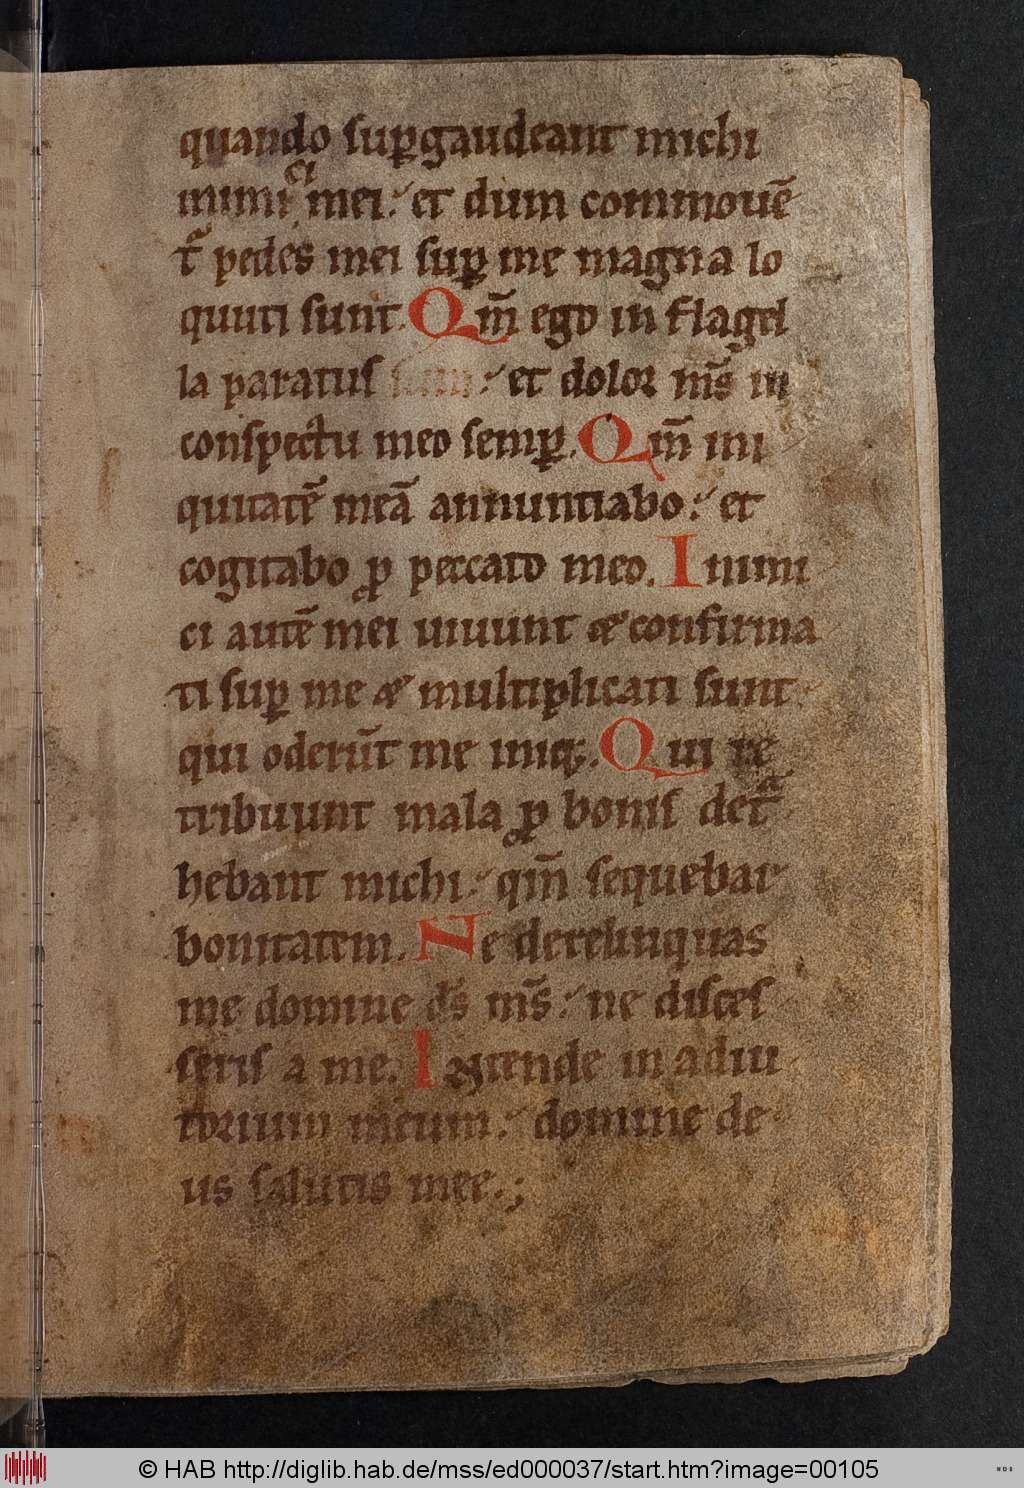 quando suꝑgaudeant michi
inimici mei: et dum commouē
t̄ pedes mei suꝑ me magna lo
quuti sunt. Qm̄ ego in flagel
la paratus sum: et dolor m̄s in
conspectu meo semꝑ. Qm̄ ini
quitatē meā annuntiabo: et
cogitabo ꝓ peccato meo. Inimi
ci autē mei uiuunt & confirma
ti suꝑ me & multiplicati sunt
qui oderūt me iniq;. Qui re
tribuunt mala ꝓ bonis det̄
hebant michi: qm̄ sequebar
bonitatem. Ne derelinquas
me domine ds̄ m̄s: ne disces
seris a me. Intende in adiu
torium meum: domine de
us salutis mee.;
© HAB http://diglib.hab.de/mss/ed000037/start.htm?image=00105